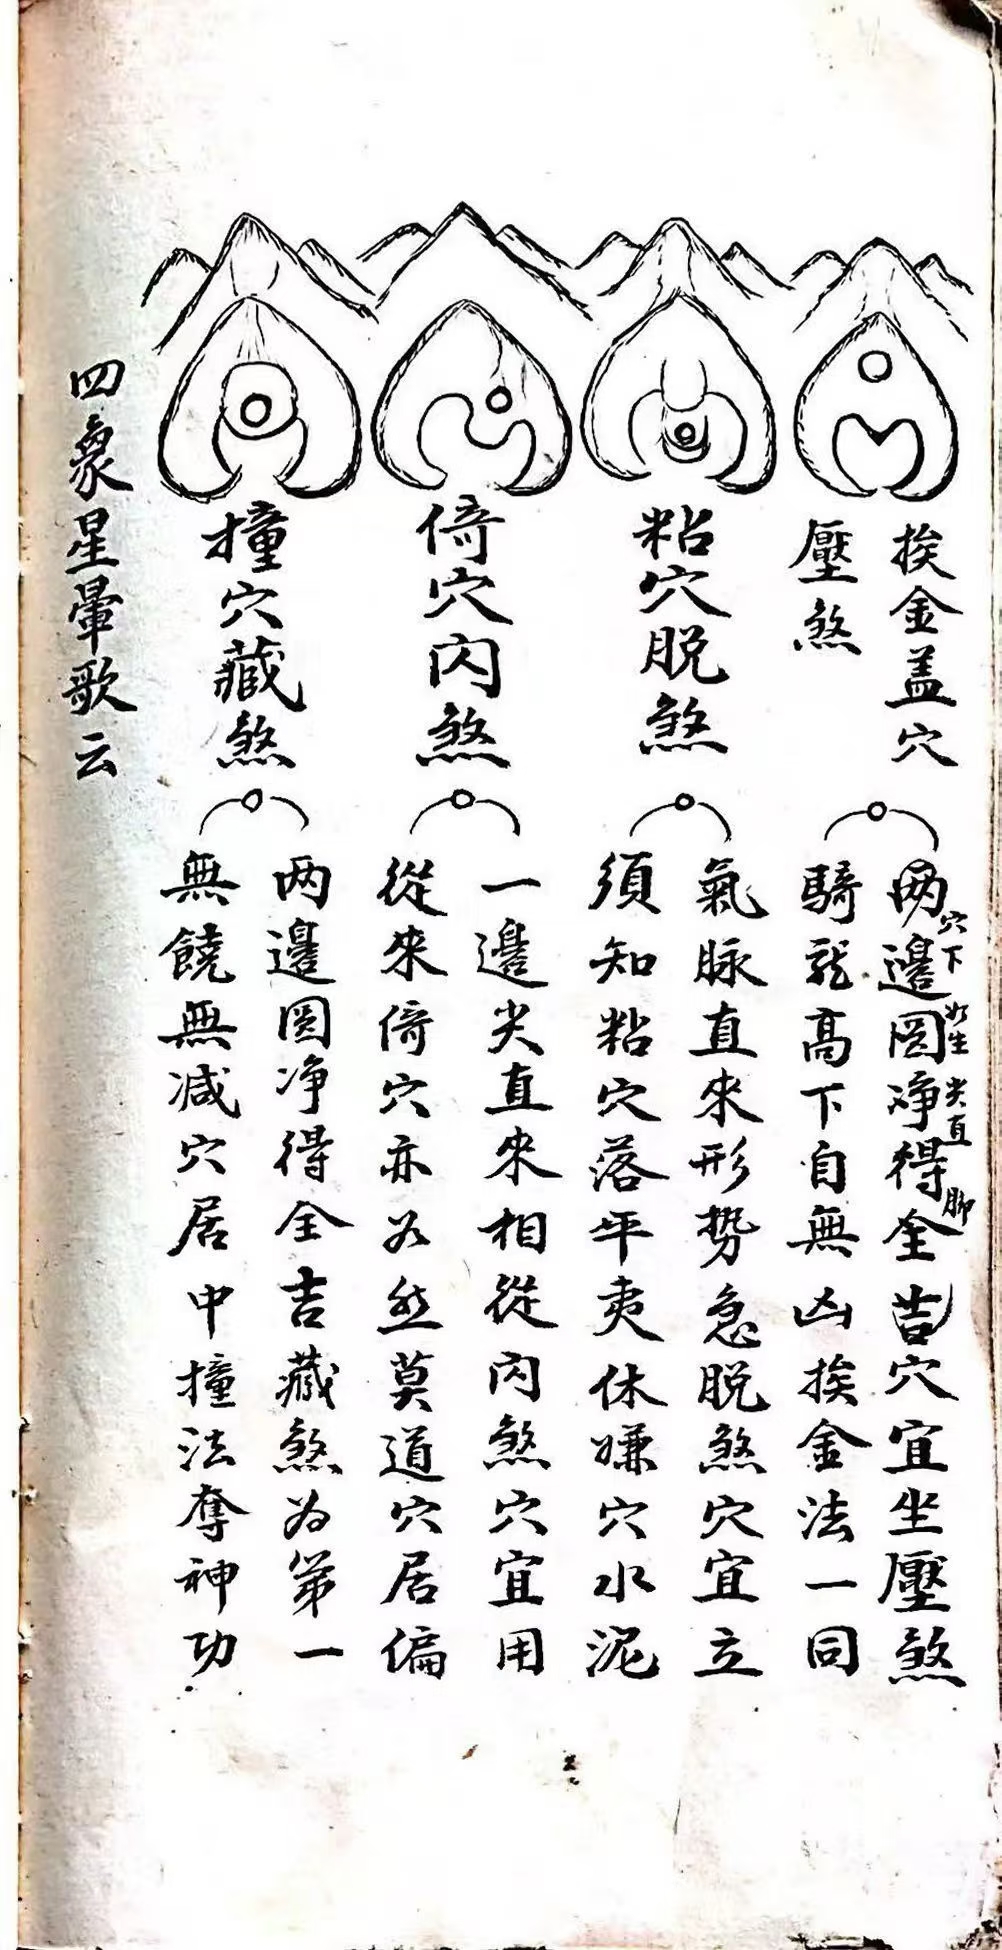 挨金盖穴
壓煞
两邊圆净得全吉穴宜坐壓煞
穴下如生尖直脚
騎龍高下自無凶挨金法一同
粘穴脱煞
氣脉直來形势急脱煞穴宜立
須知粘穴落平夷休嫌穴水泥
倚穴闪煞
一邊尖直來相從闪煞穴宜用
從來倚穴亦为然莫道穴居偏
撞穴藏煞
两邊圆净得全吉藏煞为第一
無饒無减穴居中撞法奪神功
四象星暈歌云